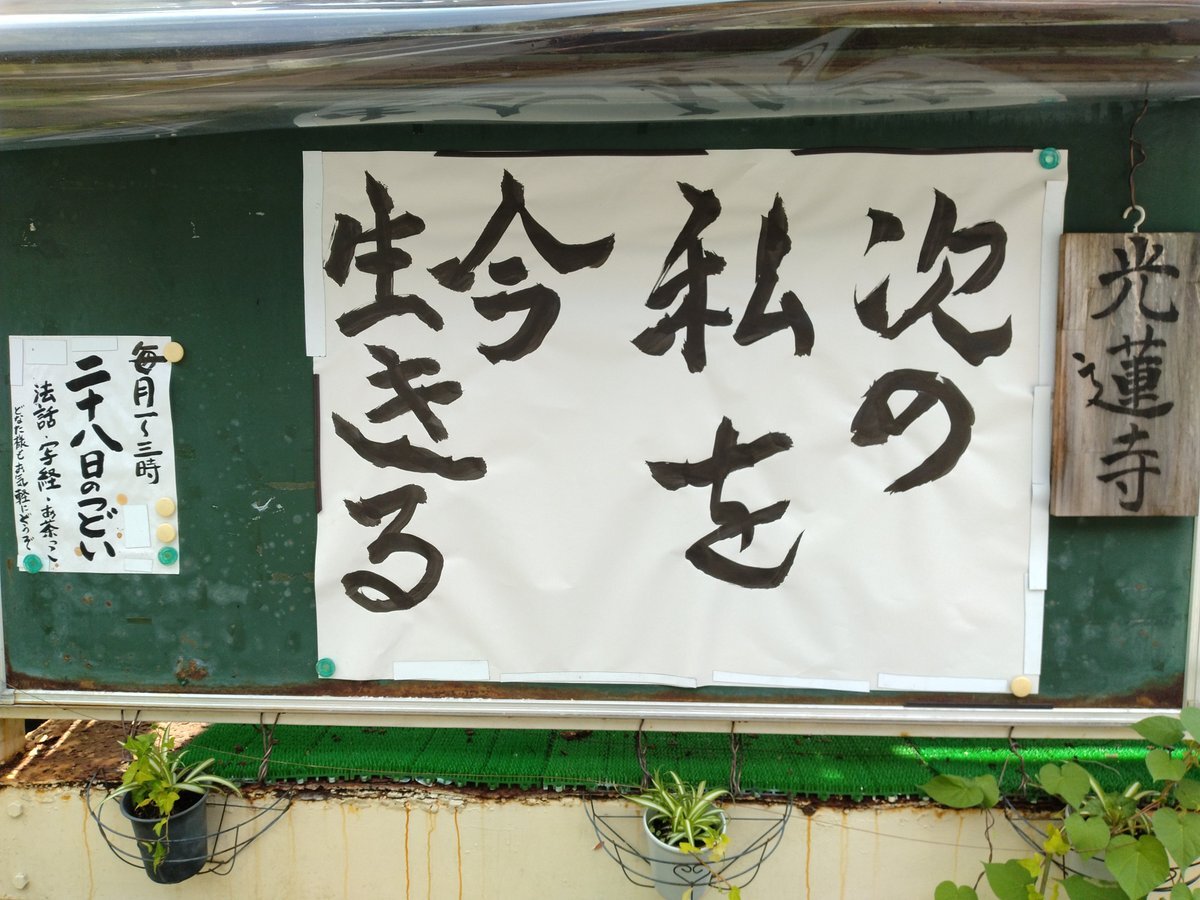 光蓮寺
次の
私を
今
生きる
毎月一〜三時
二十八日のつどい
法話・写経・お茶っこ
どなた様もお気軽にどうぞ